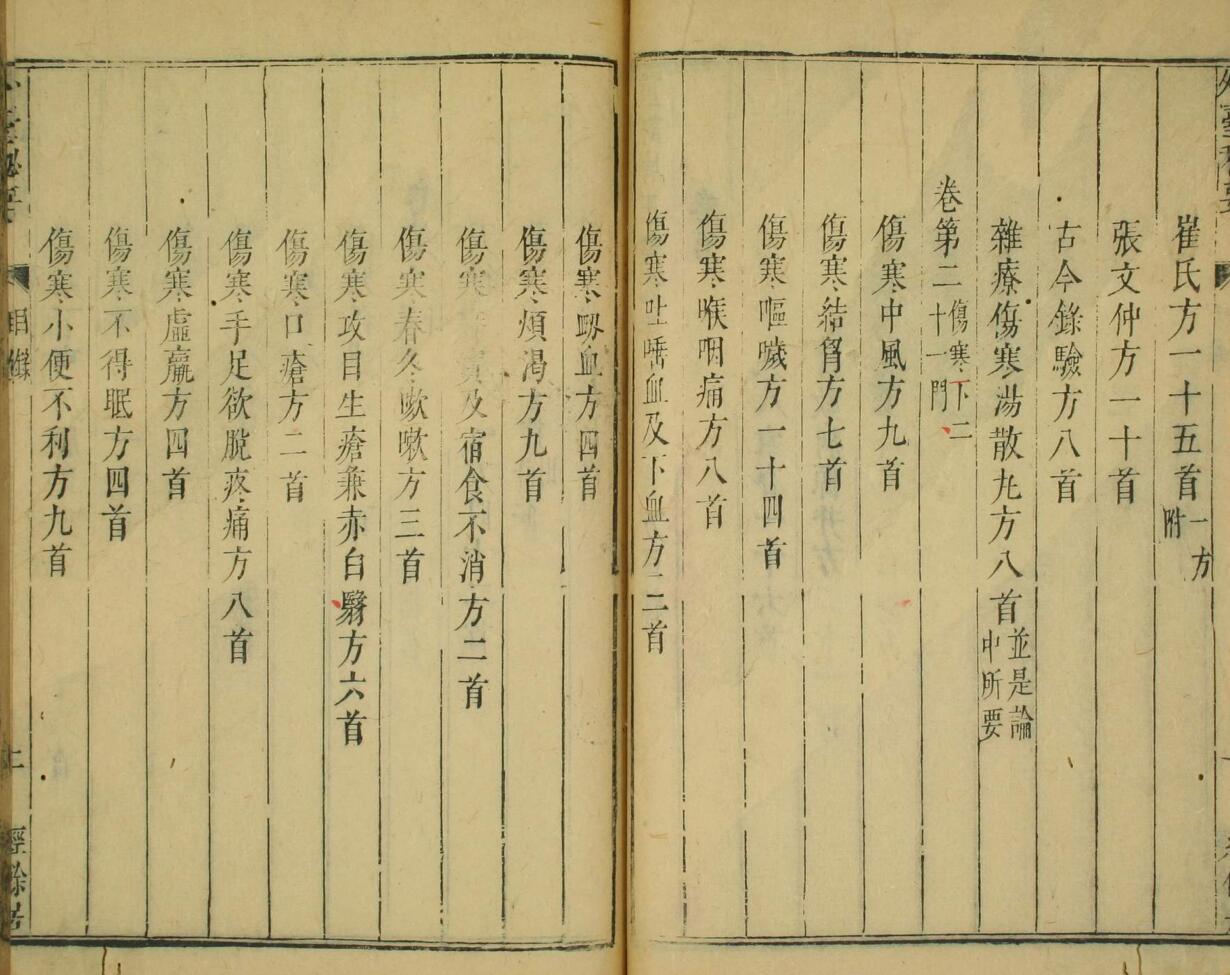 崔氏方一十五首一方附
張文仲方一十首
古今錄驗方八首
雜療傷寒湯散丸方八首並是論中所要
卷第二傷寒下二十一門
傷寒中風方九首
傷寒結胷方七首
傷寒嘔噦方一十四首
傷寒喉咽痛方八首
傷寒吐唾血及下血方二首
傷寒衂血方四首
傷寒煩渴方九首
傷寒及宿食不消方二首
傷寒春冬嗽方三首
傷寒攻目生瘡兼赤白翳方六首
傷寒口瘡方二首
傷寒手足欲脫疼痛方八首
傷寒虛羸方四首
傷寒不得眠方四首
傷寒小便不利方九首
目錄
上
經餘居